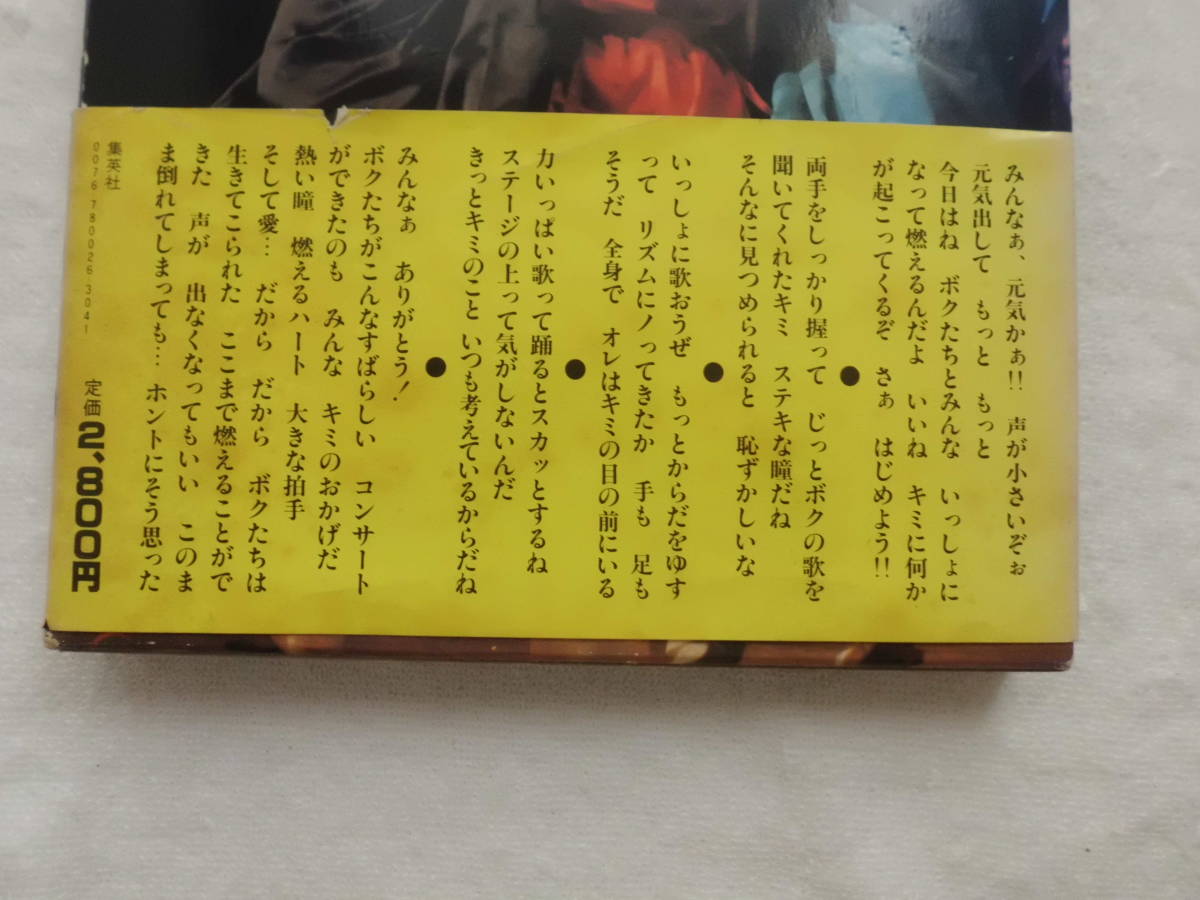 みんなぁ、元気かぁ!! 声が小さいぞぉ
元気出して もっと もっと
今日はね ボクたちとみんな いっしょに
なって燃えるんだよ いいね キミに何か
が起こってくるぞ さぁ はじめよう!!
●
両手をしっかり握って じっとボクの歌を
聞いてくれたキミ ステキな瞳だね
そんなに見つめられると 恥ずかしいな
●
いっしょに歌おうぜ もっとからだをゆす
って リズムにノってきたか 手も 足も
そうだ 全身で オレはキミの目の前にいる
●
力いっぱい歌って踊るとスカッとするね
ステージの上って気がしないんだ
きっとキミのこと いつも考えているからだね
●
みんなぁ ありがとう!
ボクたちがこんなすばらしい コンサート
ができたのも みんな キミのおかげだ
熱い瞳 燃えるハート 大きな拍手
そして愛… だから だから ボクたちは
生きてこられた ここまで燃えることがで
きた 声が 出なくなってもいい このま
ま倒れてしまっても… ホントにそう思った
集英社
0076 780026 3041
定価2,800円